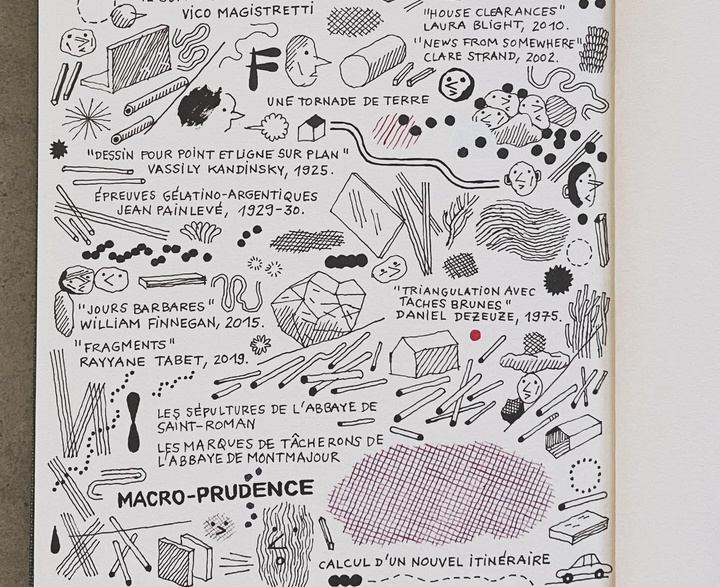 VICO MAGISTRETTI
"HOUSE CLEARANCES"
LAURA BLIGHT, 2010.
"NEWS FROM SOMEWHERE"
CLARE STRAND, 2002.
F
UNE TORNADE DE TERRE
"DESSIN POUR POINT ET LIGNE SUR PLAN"
VASSILY KANDINSKY, 1925.
ÉPREUVES GÉLATINO-ARGENTIQUES
JEAN PAINLEVÉ, 1929-30.
"JOURS BARBARES"
WILLIAM FINNEGAN, 2015.
"TRIANGULATION AVEC
TACHES BRUNES"
DANIEL DEZEUZE, 1975.
"FRAGMENTS"
RAYYANE TABET, 2019.
LES SÉPULTURES DE L'ABBAYE DE
SAINT-ROMAN
LES MARQUES DE TÂCHERONS DE
L'ABBAYE DE MONTMAJOUR
MACRO-PRUDENCE
CALCUL D'UN NOUVEL ITINÉRAIRE